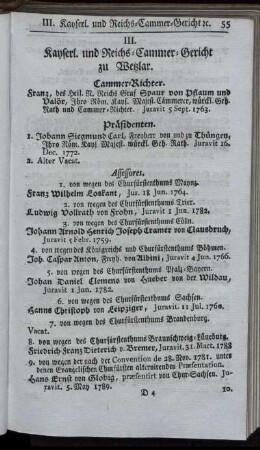 III. Kayserl. und Reichs-Cammer-Gericht ꝛc. 55
III.
Kayserl. und Reichs-Cammer-Gericht
zu Wetzlar.
Cammer-Richter.
Franz, des Heil. R. Reichs Graf Spaur von Pflaum und
Valör, Ihro Röm. Kays. Majest. Cämmerer, würckl. Geh.
Rath und Cammer-Richter. Juravit 5 Sept. 1763.
Präsidenten.
1. Johann Siegmund Carl, Freyherr von und zu Thüngen,
Ihro Röm. Kays. Majest. würckl. Geh. Rath. Juravit 16.
Dec. 1772.
2. Alter Vacat.
Assessores.
1. von wegen des Churfürstenthums Maynz.
Franz Wilhelm Loskant, Jur. 18 Jun. 1764.
2. von wegen des Churfürstenthums Trier.
Ludwig Vollrath von Frohn, Juravit 1 Jun. 1782.
3. von wegen des Churfürstenthums Cölln.
Johann Arnold Henrich Joseph Cramer von Clausbruch,
Juravit 4 Febr. 1759.
4. von wegen des Königreichs und Churfürstenthums Böhmen.
Joh. Caspar Anton, Freyh. von Albini, Juravit 4 Jun. 1766.
5. von wegen des Churfürstenthums Pfalz-Bayern.
Johan Daniel Clemens von Hueber von der Wildau,
Juravit 1 Jun. 1782.
6. von wegen des Churfürstenthums Sachsen.
Hanns Christoph von Leipziger, Juravit 11 Jul. 1760.
7. von wegen des Churfürstenthums Brandenburg.
Vacat.
8. von wegen des Churfürstenthums Braunschweig-Lüneburg.
Friedrich Franz Dieterich v. Bremer, Juravit. 31 Mart. 1783
9. von wegen der nach der Convention de 28. Nov. 1781. unter
denen Evangelischen Churfürsten alternirenden Præsentation.
Hans Ernst von Globig, præsentirt von Chur-Sachsen. Ju-
ravit. 5. May 1789.
D 4 10.